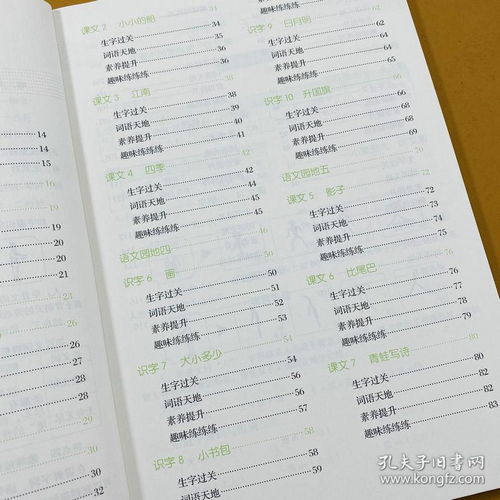 14
14
15
16
19
19
20
20
21
23
26
26
27
28
29
30
30
32
课文 2 小小的船 34
生字过关 34
词语天地 35
素养提升 36
趣味练练练 36
课文 3 江南 38
生字过关 38
词语天地 39
素养提升 40
趣味练练练 41
课文 4 四季 42
生字过关 42
词语天地 44
素养提升 45
趣味练练练 45
语文园地四 46
识字 6 画 50
生字过关 50
词语天地 51
素养提升 52
趣味练练练 53
识字 7 大小多少 54
生字过关 54
词语天地 56
素养提升 57
趣味练练练 57
识字 8 小书包 58
生字过关 58
词语天地 59
趣味练练练
识字 9 日月明 62
生字过关 62
词语天地 64
素养提升 64
趣味练练练 65
识字 10 升国旗 66
生字过关 66
词语天地 68
素养提升 68
趣味练练练 69
语文园地五
课文 5 影子 72
生字过关 72
词语天地 73
素养提升 74
趣味练练练 75
课文 6 比尾巴 76
生字过关 76
词语天地 77
素养提升 78
趣味练练练 79
课文 7 青蛙写诗 80
生字过关 80
词语天地 82
素养提升 82
趣味练练练 83
孔夫子旧书网